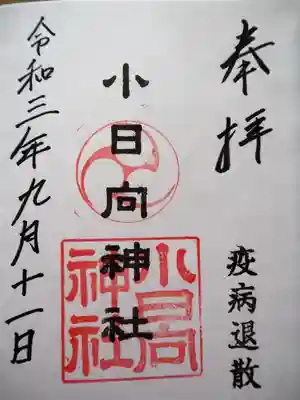 奉拝
疫病退散
小日向神社
小日向神社
令和三年九月十一日